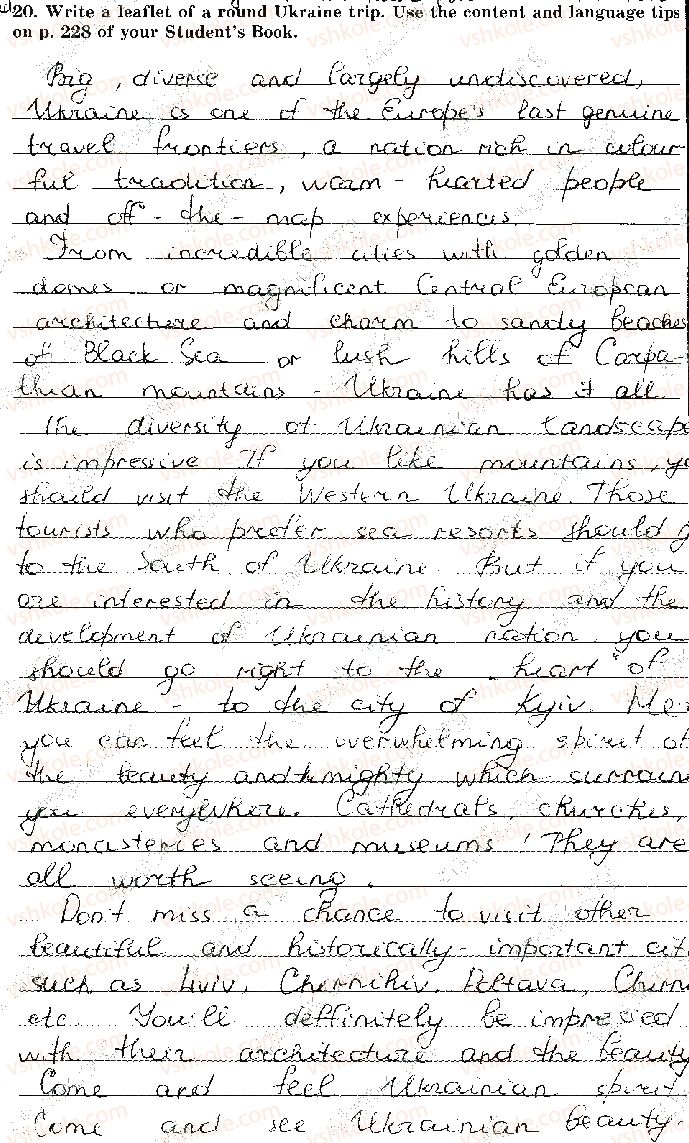 20. Write a leaflet of a round Ukraine trip. Use the content and language tips
on p. 228 of your Student's Book.
Big, diverse and largely undiscovered,
Ukraine is one of the Europe's last genuine
travel frontiers, a nation rich in colour-
ful tradition, warm-hearted people
and off-the-map experiences.
From incredible cities with golden
domes or magnificent Central European
architecture and charm to sandy beaches
of Black Sea or lush hills of Carpa-
thian mountains - Ukraine has it all.
The diversity of Ukrainian landscape
is impressive. If you like mountains, yo
should visit the Western Ukraine. Those
tourists who prefer sea resorts should g
to the South of Ukraine. But if you
are interested in the history and the
development of Ukrainian nation, you
should go right to the "heart" of
Ukraine - to the city of Kyiv. He
you can feel the overwhelming spirit of
the beauty and mighty which surroun
you everywhere. Cathedrals, churches,
monasteries and museums! They are
all worth seeing.
Don't miss a chance to visit other
beautiful and historically-important cit
such as Lviv, Chernihiv, Poltava, Cherni
etc. You'll deffinitely be impressed
with their architecture and the beauty
Come and feel Ukrainian spirit.
Come and see Ukrainian beauty.
vshkole.com